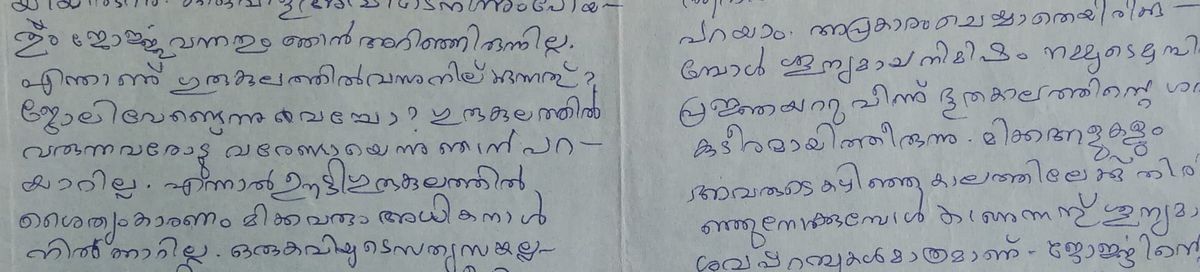 ഇും ജോർജ്ജു വന്നതും ഞാൻ അറിഞ്ഞിരുന്നില്ല.
എന്താണ് ഗുരുകുലത്തിൽ വന്നു നില്ക്കുന്നത്?
ജോലി വേണ്ടെന്നു വെച്ചോ? ഗുരുകുലത്തിൽ
വരുന്നവരോടു വരേണ്ടായെന്നു ഞാൻ പറ-
യാറില്ല. എന്നാൽ ഊട്ടി ഗുരുകുലത്തിൽ
ശൈത്യം കാരണം മിക്കവരും അധികനാൾ
നിൽക്കാറില്ല. ഒരു കവിയുടെ സത്യസങ്കല്പ-
പറയാം. അപ്രകാരം ചെയ്യാതെയിരിക്കു-
മ്പോൾ ശൂന്യമായ നിമിഷം നമ്മുടെ
പ്രജ്ഞയറ്റു വീണ് ഭൂതകാലത്തിന്റെ
കുടീരമായിത്തീരുന്നു. മിക്ക ആളുകളും
അവരുടെ കഴിഞ്ഞ കാലത്തിലേക്ക് തിരി
ഞ്ഞുനോക്കുമ്പോൾ കാണുന്നത് ശൂന്യമാ
ശവപ്പറമ്പുകൾ മാത്രമാണ്. ജോർജ്ജിന്റെ